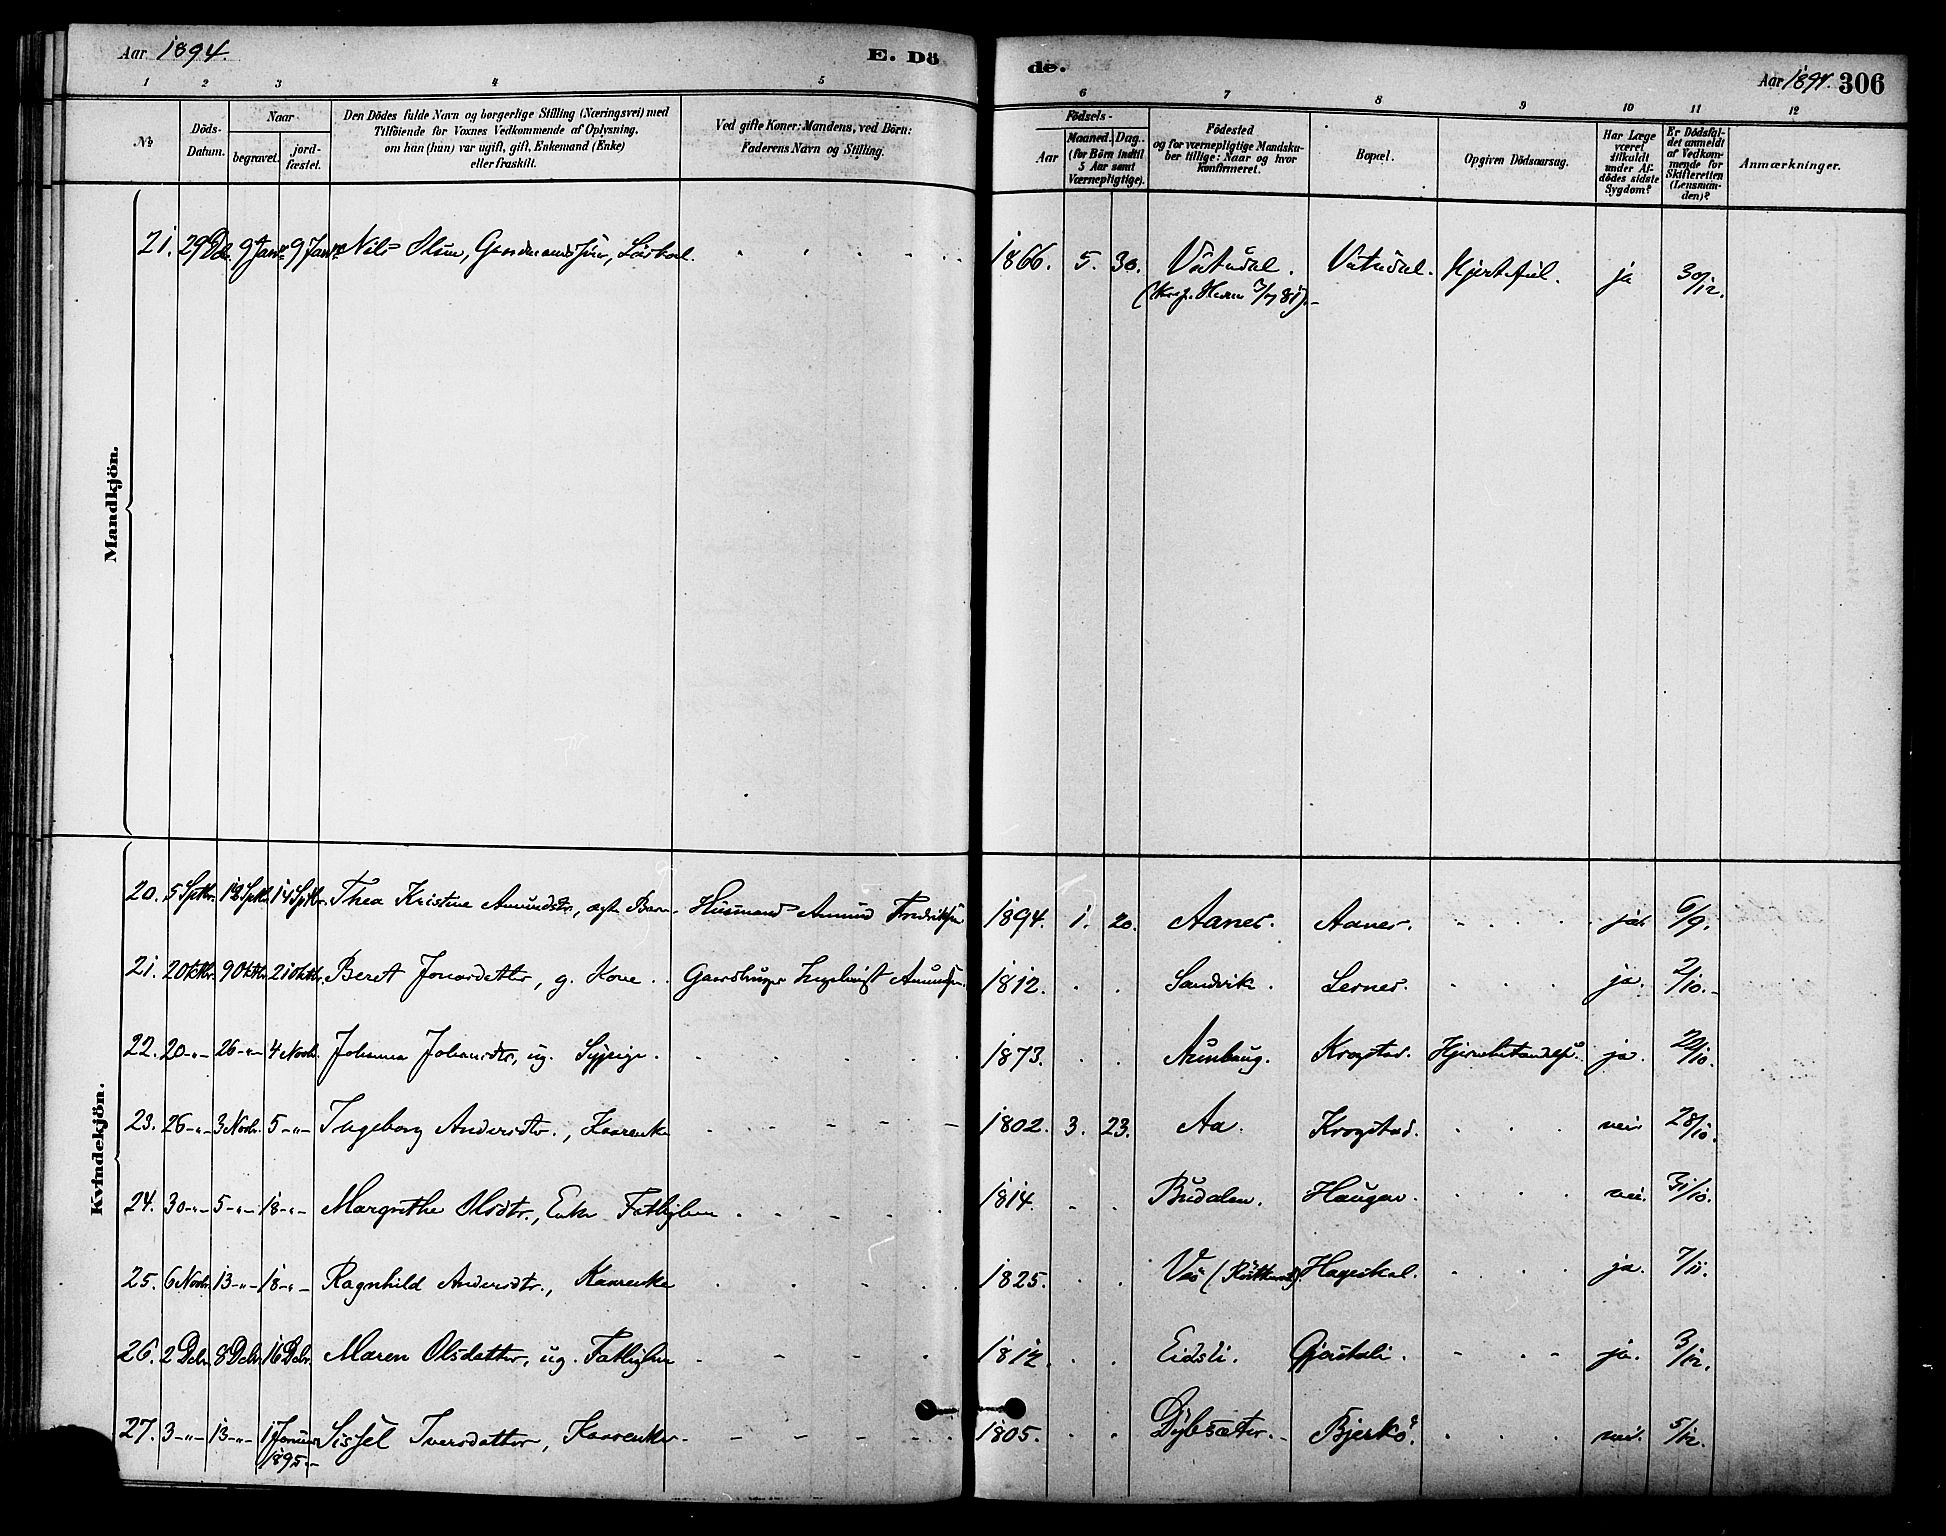 Aar 1894.
E. Dö
de.
Aar 1894. 306
1 2 3 4 5
6 7 8 9 10 11 12
No
Döds-
Datum.
Naar
begravet.
jord-
fæstet.
Den Dödes fulde Navn og borgerlige Stilling (Næringsvei) med
Tilföiende for Voxnes Vedkommende af Oplysning,
om han (hun) var ugift, gift, Enkemand (Enke)
eller fraskilt.
Ved gifte Koner: Mandens, ved Börn:
Faderens Navn og Stilling.
Födsels-
Aar
Maaned. Dag.
(for Börn indtil
5 Aar samt
Værnepligtige).
Födested
og for værnepligtige Mandska-
ber tillige: Naar og hvor
konfirmeret.
Bopæl.
Opgiven Dödsaarsag.
Har Læge
været
tilkaldt
under Af-
dödes sidste
Sygdom?
Er Dödsfal-
det anmeldt
af Vedkom-
mende for
Skifteretten
(Lensman-
den)?
Anmærkninger.
Mandkjön.
21. 29 Dec. 9 Janr 9 Janr Nils Olsen, 1866. 5. 30. Vutudal. Vutudal. Hjertefeil. ja 30/12.
Kvindekjön.
20. 5 Sptbr. 12 Sptbr. 14 Sptbr. Thea Kristine Amundsdtr., ægte Barn Husmand Amund Fredriksen 1894. 1. 20. Aanes. Aanes. ja. 6/9.
21. 2 Oktbr. 9 Oktbr. 21 Oktbr. Beret Jonasdatter, g. Kone. Gaardbruger Ingebrigt Amundsen. 1812. Sandvik. Lernes. ja. 2/10.
22. 20 -"- 26 -"- 4 Novbr. Johanna Johansdtr., ug. Sypige. 1873. Aunhaug. Krogstad. Hjernebetændelse. ja. 22/10.
23. 26 -"- 3 Novbr. 5 -"- Ingeborg Andersdtr., Kaarenke 1802. 3. 23. Aa. Krogstad. nei 28/10.
24. 30 -"- 5 -"- 18 -"- Margrethe Olsdtr., Enke Fattiglem 1814. Budalen. Haugen. nei. 31/10.
25. 6 Novbr. 13 -"- 18 -"- Ragnhild Andersdtr., Kaarenke 1825. Hageskal. ja. 7/11.
26. 2 Debr. 8 Debr. 16 Debr. Maren Olsdatter, ug. Fattiglem 1812. Eidsli. Gjerstali. ja. 3/12.
27. 3 -"- 13 -"- 1 Januar Sissel Iversdatter, Kaarenke 1805. Dybsæter. Bjerkö. nei. 5/12.
1895.